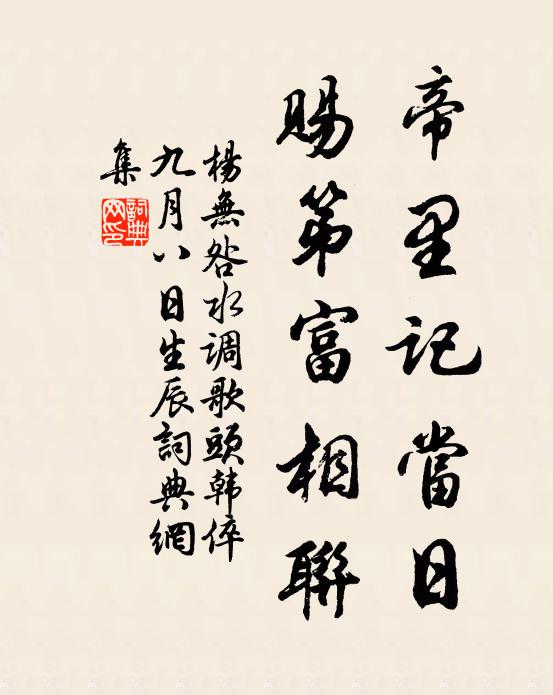 帝里記當日
賜第富相聯
楊無咎水调歌頭韩倅
九月八日生辰詞典網
集
詞典
网印